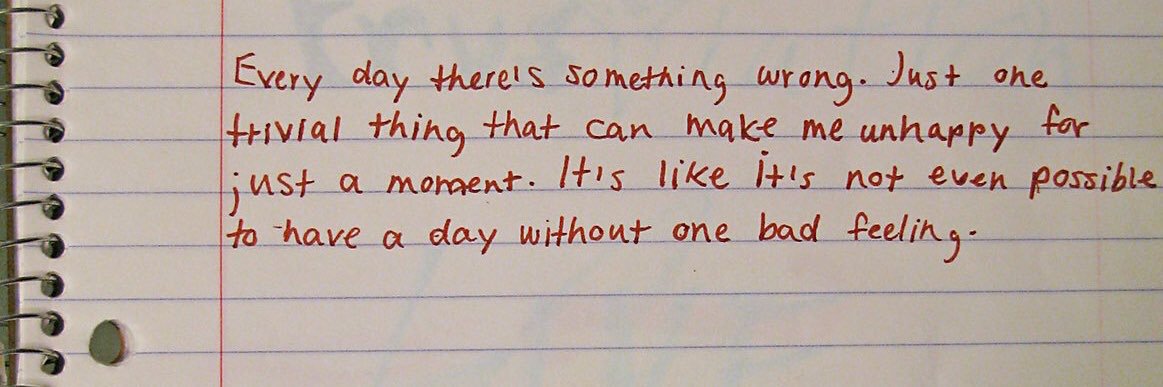 Every day there's something wrong. Just one
trivial thing that can make me unhappy for
just a moment. It's like it's not even possible
to have a day without one bad feeling.